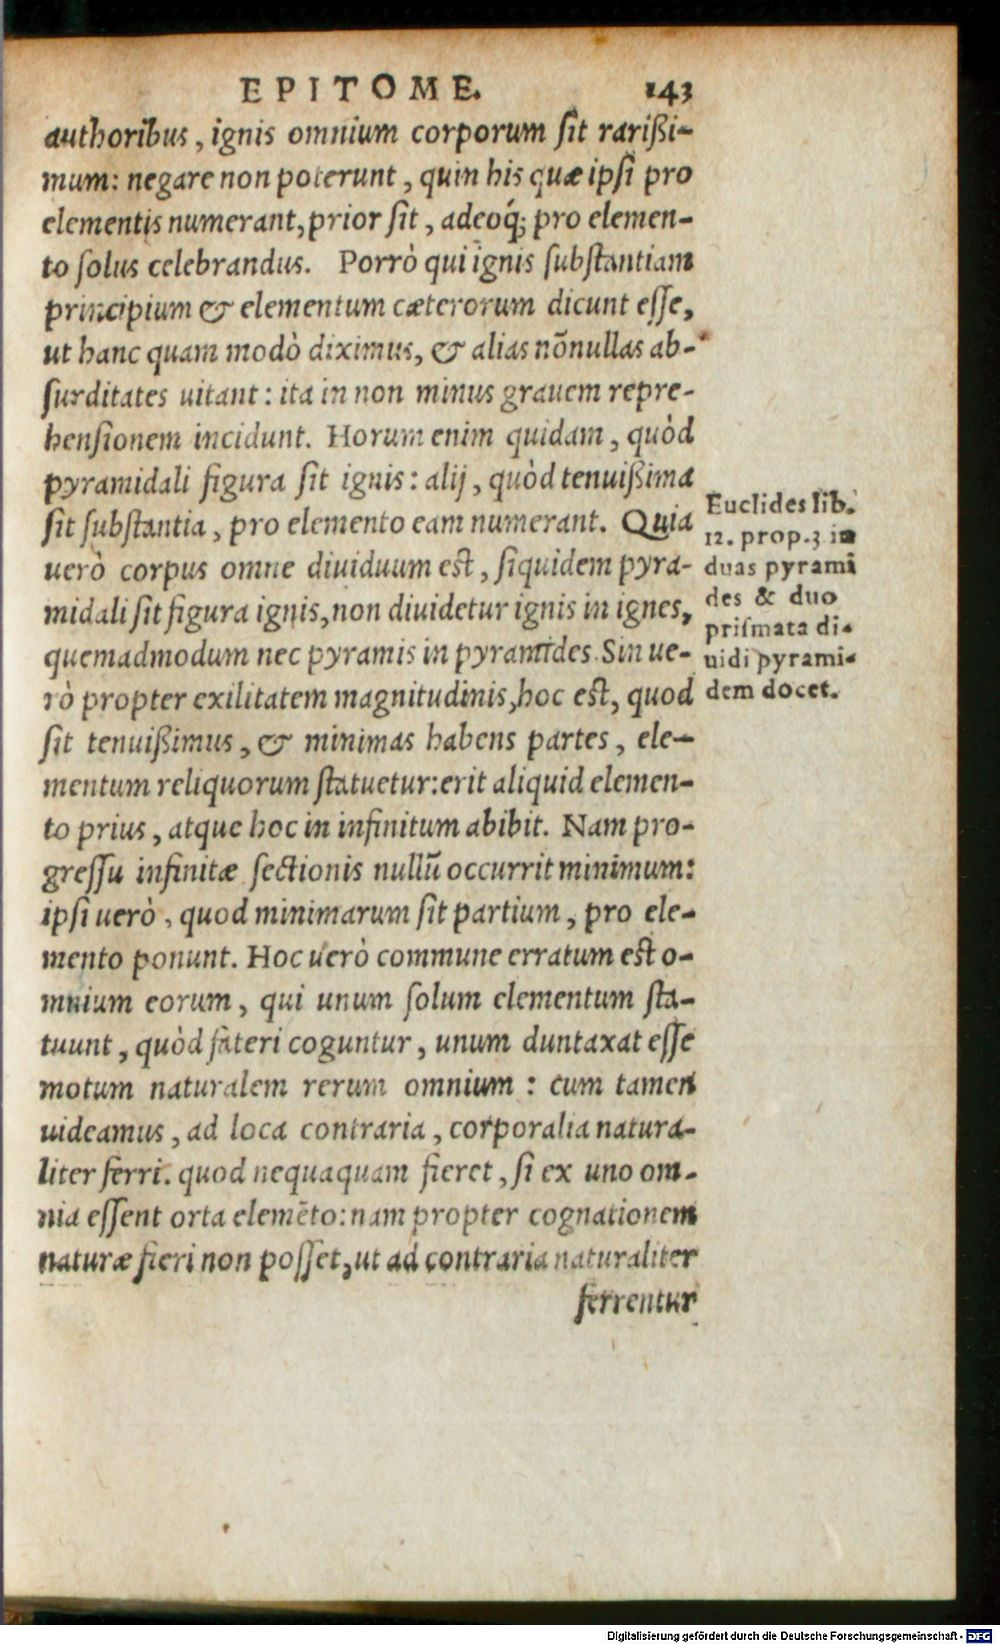 EPITOME. 143
authoribus, ignis omnium corporum ſit rarißi-
mum: negare non poterunt, quin his quæ ipſi pro
elementis numerant, prior ſit, adeoq́; pro elemen-
to ſolus celebrandus. Porrò qui ignis ſubſtantiam
principium & elementum cæterorum dicunt eſſe,
ut hanc quam modò diximus, & alias nõnullas ab-
ſurditates uitant: ita in non minus grauem repre-
henſionem incidunt. Horum enim quidam, quòd
pyramidali figura ſit ignis: alij, quòd tenuißima
ſit ſubſtantia, pro elemento eam numerant. Quia
uerò corpus omne diuiduum eſt, ſiquidem pyra-
midali ſit figura ignis, non diuidetur ignis in ignes,
quemadmodum nec pyramis in pyramides. Sin ue-
rò propter exilitatem magnitudinis, hoc eſt, quod
ſit tenuißimus, & minimas habens partes, ele-
mentum reliquorum ſtatuetur: erit aliquid elemen-
to prius, atque hoc in infinitum abibit. Nam pro-
greſſu infinitæ ſectionis nullũ occurrit minimum:
ipſi uerò, quod minimarum ſit partium, pro ele-
mento ponunt. Hoc uerò commune erratum eſt o-
mnium eorum, qui unum ſolum elementum ſta-
tuunt, quòd fateri coguntur, unum duntaxat eſſe
motum naturalem rerum omnium: cum tamen
uideamus, ad loca contraria, corporalia natura-
liter ferri. quod nequaquam fieret, ſi ex uno om-
nia eſſent orta elemẽto: nam propter cognationem
naturæ fieri non poſſet, ut ad contraria naturaliter
ferrentur
Euclides lib.
12. prop. 3 in
duas pyrami
des & duo
priſmata di-
uidi pyrami-
dem docet.
Digitalisierung gefördert durch die Deutsche Forschungsgemeinschaft - DFG